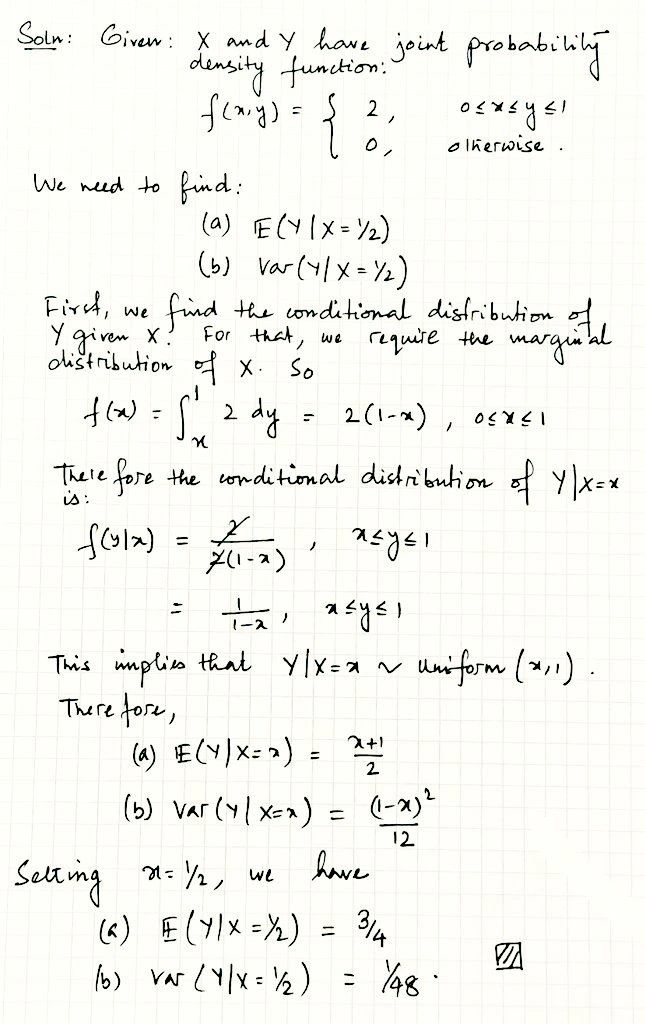 Soln: Given: X and Y have joint probability
density function:
f(x,y) = { 2, 0≤x≤y≤1
0, otherwise.
We need to find:
(a) E(Y|X=1/2)
(b) Var(Y|X=1/2)
First, we find the conditional distribution of
Y given X. For that, we require the marginal
distribution of X. So
f(x) = ∫_x^1 2 dy = 2(1-x), 0≤x≤1
Therefore the conditional distribution of Y|X=x
is:
f(y|x) = 2/2(1-x), x≤y≤1
= 1/1-x, x≤y≤1
This implies that Y|X=x ~ Uniform (x,1).
Therefore,
(a) E(Y|X=x) = x+1/2
(b) Var(Y|X=x) = (1-x)²/12
Setting x=1/2, we have
(a) E(Y|X=1/2) = 3/4
(b) Var(Y|X=1/2) = 1/48.